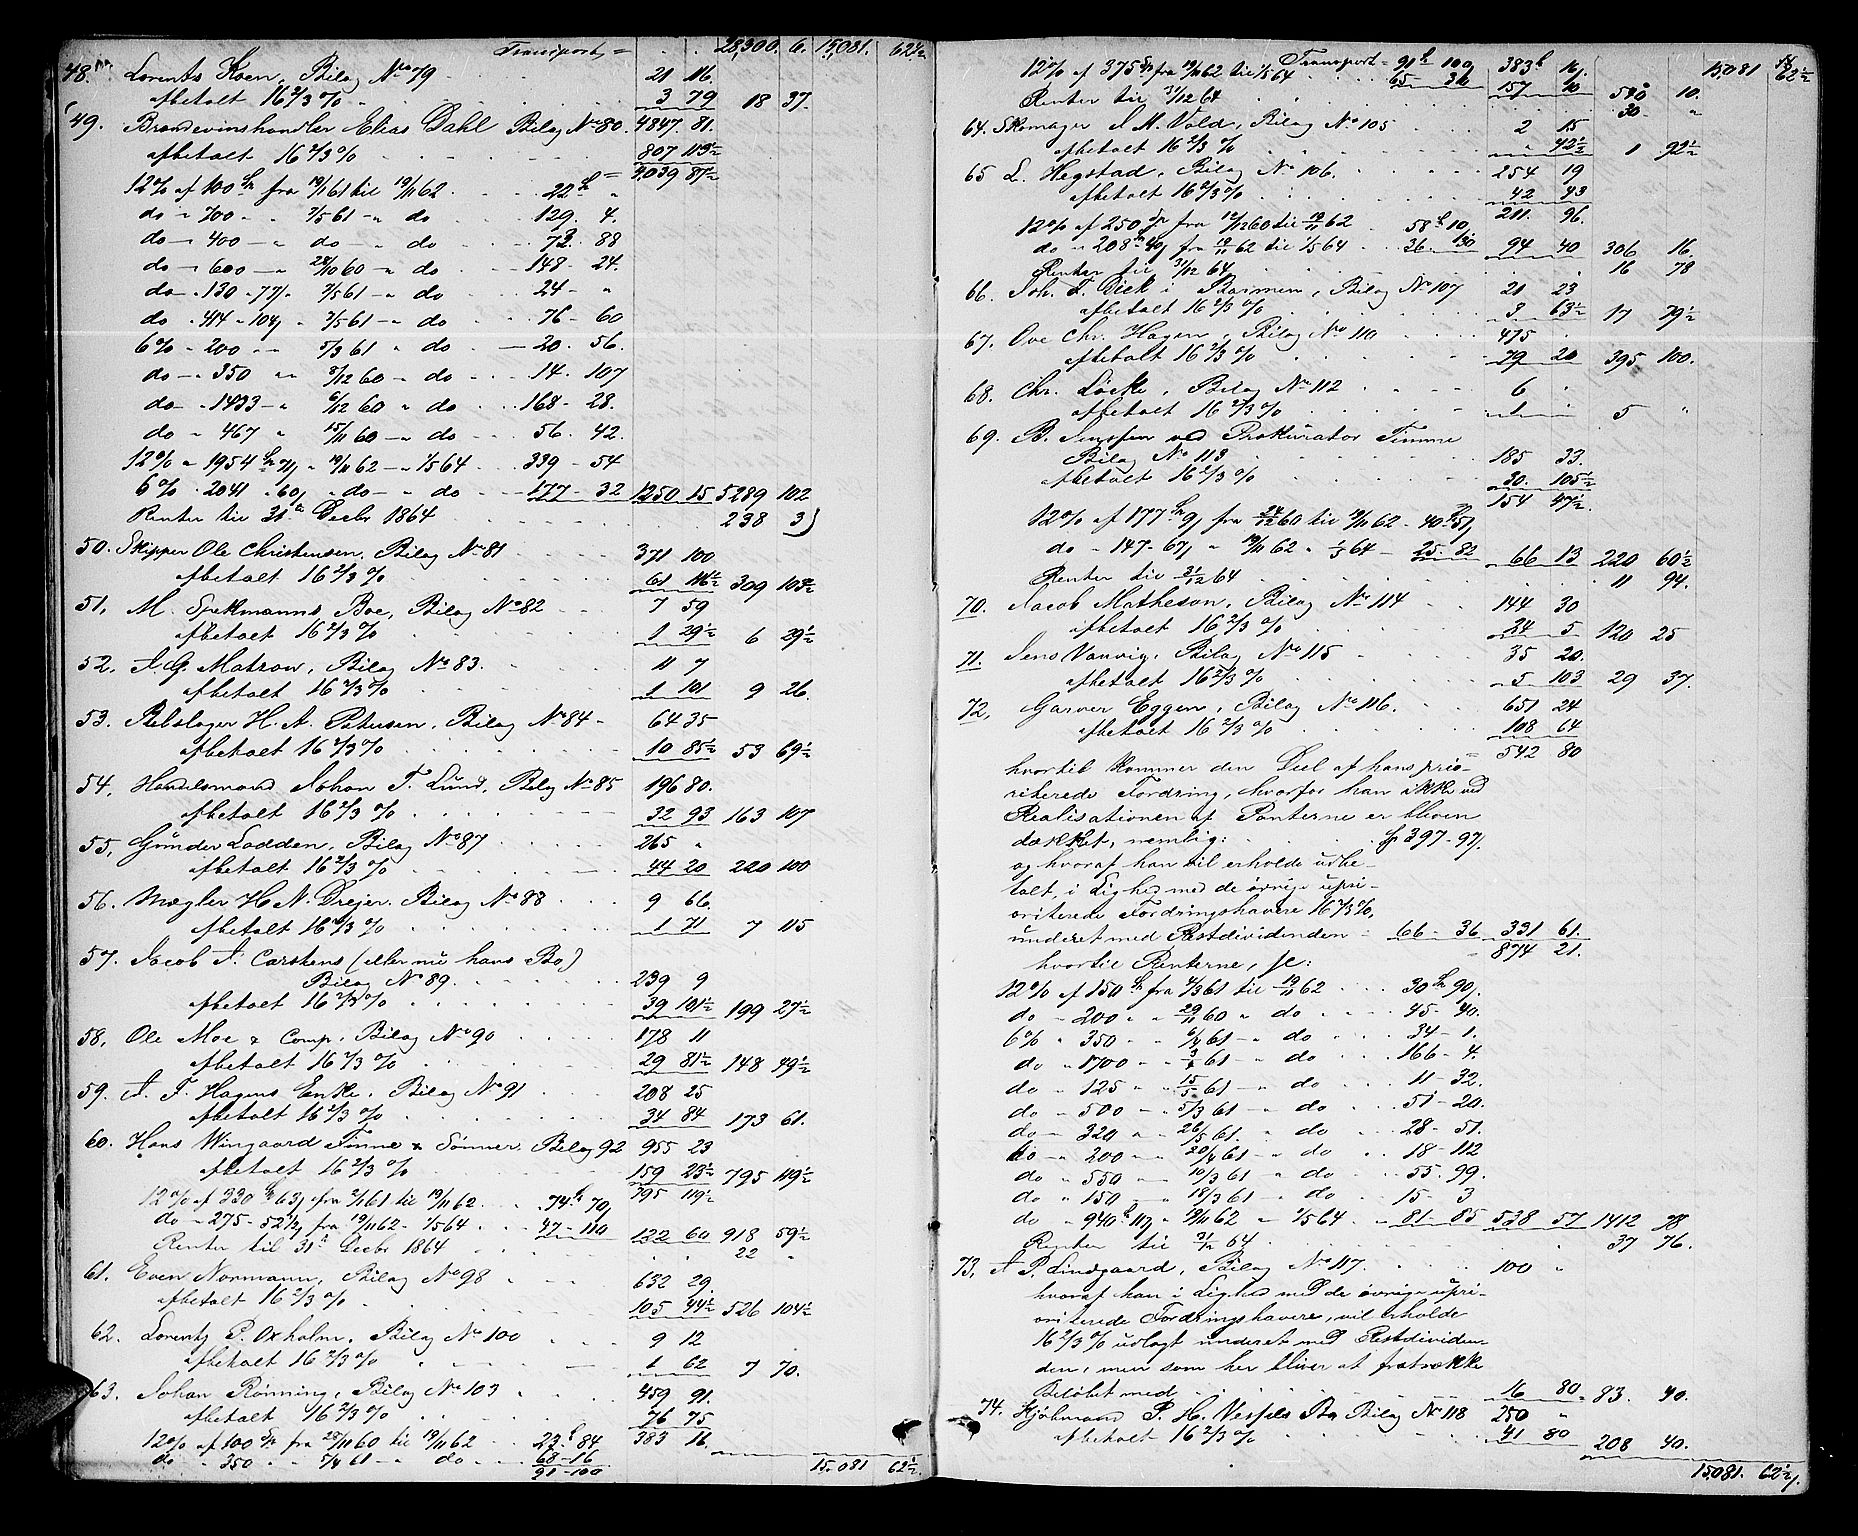 Transport = 28,300. 6. 15,081. 62½
48. Lorents Koen, Bilag No 79 21 116.
afbetalt 16 2/3 % 3 79 18 37.
49. Brændevinshandler Elias Dahl Bilag No 80. 4847. 81.
afbetalt 16 2/3 % 807 113½
= 4,039 87½
12% af 100 fra 19/11 61 til 19/11 62 22
do " 700 " 2/5 61 " do 129. 4.
do " 400 " do " do 73. 88
do " 600 " 28/10 60 " do 148. 24.
do " 130 " 77 " 2/5 61 " do 24 "
do " 414 " 104 " 2/5 61 " do 76 - 60
6% " 200 " 5/3 61 " do 20. 56.
do " 350 " 8/12 60 " do 14. 107
do " 1433 " 6/12 60 " do 168 - 28.
do " 467 " 15/11 60 " do 56. 42.
12% " 1954 " 71 " 19/11 62 " 1/5 64 339 - 54
6% " 2041 " 60 " do " do 177 - 32 1250 15 5289 102
Renter til 31te Decbr 1864 238 3
50. Skipper Ole Christensen, Bilag No 81 371 100
afbetalt 16 2/3 % 61 116½ 309 103½
51. M. Spekmanns Boe, Bilag No 82 7 59
afbetalt 16 2/3 % 1 29½ 6 29½
52. J. G. Matzow, Bilag No 83. 11 7
afbetalt 16 2/3 % 1 101 9 26.
53. Rebslager H. A. Petersen, Bilag No 84 - 64 35
afbetalt 16 2/3 % 10 85½ 53 69½
54. Handelsmand Johan T. Lund, Bilag No 85 196 80.
afbetalt 16 2/3 % 32 93 163 107
55. Günder Lodden, Bilag No 87 265 "
afbetalt 16 2/3 % 44 20 220 100
56. Mægler H. N. Drejer, Bilag No 88 9 66.
afbetalt 16 2/3 % 1 71 7 115
57. Jacob A. Carstens (eller nu hans Bo)
Bilag No 89. 239 9
afbetalt 16 2/3 % 39 101½ 199 27½
58. Ole Moe & Comp, Bilag No 90 178 11
afbetalt 16 2/3 % 29 81½ 148 49½
59. A. F. Hagens Enke, Bilag No 91 208 25
afbetalt 16 2/3 % 34 84 173 61.
60. Hans Wingaard Finne & Sønner, Bilag 92 955 23
afbetalt 16 2/3 % 159 23½ 795 119½
12% af 320 63 fra 2/1 61 til 19/11 62 74 70 795 119½
do " 275 - 52½ fra 19/11 62 - 1/5 64 47 - 110 122 60 918 59½
Renter til 31te Decbr 1864 22 "
61. Even Normann, Bilag No 98 632 29.
afbetalt 16 2/3 % 105 44½ 526 104½
62. Lorentz P. Oxholm, Bilag No 100 9 12
afbetalt 16 2/3 % 1 62 7 70.
63. Johan Rønning, Bilag No 103 459 91.
afbetalt 16 2/3 % 76 75
12% af 100 fra 28/11 60 til 19/11 62 23 84 383 16.
do " 350 " 7/4 61 " do 68 - 16
91 - 100 15,081 62½.
Transport = 91 100 383 16 15,081 62½
12% af 375 fra 19/11 62 til 1/5 64 65 30 157 10 540 10.
Renter til 31/12 64 30 "
64. Skomager J. M. Vold, Bilag No 105 2 15
afbetalt 16 2/3 % " 42½ 1 92½
65 L. Hegstad, Bilag No 106. 254 19
afbetalt 16 2/3 % 42 43
12% af 250 fra 12/12 60 til 19/11 62 58 10. 211 96.
do " 208 40 fra 19/11 62 til 1/5 64 36. 30 94 40 306 16.
Renter til 31/12 64 16 78
66. Joh. F. Dick i Barmen, Bilag No 107 21 23
afbetalt 16 2/3 % 3 63½ 17 79½
67. Ove Chr. Hagen, Bilag No 110 475
afbetalt 16 2/3 % 79 20 395 100.
68. Chr. Løcke, Bilag No 112 6
afbetalt 16 2/3 % 1 5 "
69. B. Jenssen ved Prokurator Timme
Bilag No 113 185 33.
afbetalt 16 2/3 % 30. 105½
154 47½.
12% af 177 9 fra 24/12 60 til 19/11 62 - 40 51
do - 147 - 67 " 19/11 62 " 1/5 64 - 25 - 82 66 13 220 60½
Renter til 31/12 64 11 94.
70. Jacob Matheson, Bilag No 114 144 30
afbetalt 16 2/3 % 24 5 120 25
71. Jens Vanvig, Bilag No 115 35 20.
afbetalt 16 2/3 % 5 103 29 37.
72. Garver Eggen, Bilag No 116. 651 24
afbetalt 16 2/3 % 108 64
= 542 80
hvortil kommer den Deel af hans prio-
riterede Fordring, hvorfor han ikke ved
Realisationen af Panterne er bleven
dækket, nemlig: 397 - 97.
og hvoraf han vil erholde udbe-
talt, i Lighed med de øvrige upri-
oriterede Fordringshavere 16 2/3 %,
underet med Restdividenden - 66 - 36 331 61.
hvortil Renterne, 874 21.
12% af 150 fra 4/3 61 til 19/11 62 30 90.
do " 200 " 29/11 60 " do 45 - 40.
6% " 350 " 6/4 61 " do 34 - 1.
do " 1700 " 3/4 61 " do 166 - 4.
do " 125 " 15/5 61 " do 11 - 32.
do " 500 " 5/3 61 " do 51 - 20.
do " 320 " 26/5 61. " do 28 - 51.
do " 200 " 20/4 61 " do 18 - 112
do " 550 " 10/3 61 " do 55. 99.
do " 150 " 18/3 61 " do 15 - 3
do " 940 113 " 19/11 62 " 1/5 64 81 - 85 538 57 1412 78
Renter til 31/12 64 37 76.
73. A. P. Lindgaard, Bilag No 117. 100 "
hvoraf han i Lighed med de øvrige upri-
oriterede Fordringshavere, vil erholde
16 2/3 % udlagt underet med Restdividen
den, men som her bliver at fratrække
Beløbet med 16 80 = 83. 40.
74. Kjøbmand P. H. Bo, Bilag No 118 250 "
afbetalt 16 2/3 % 41 80 208 40.
15,081. 62½